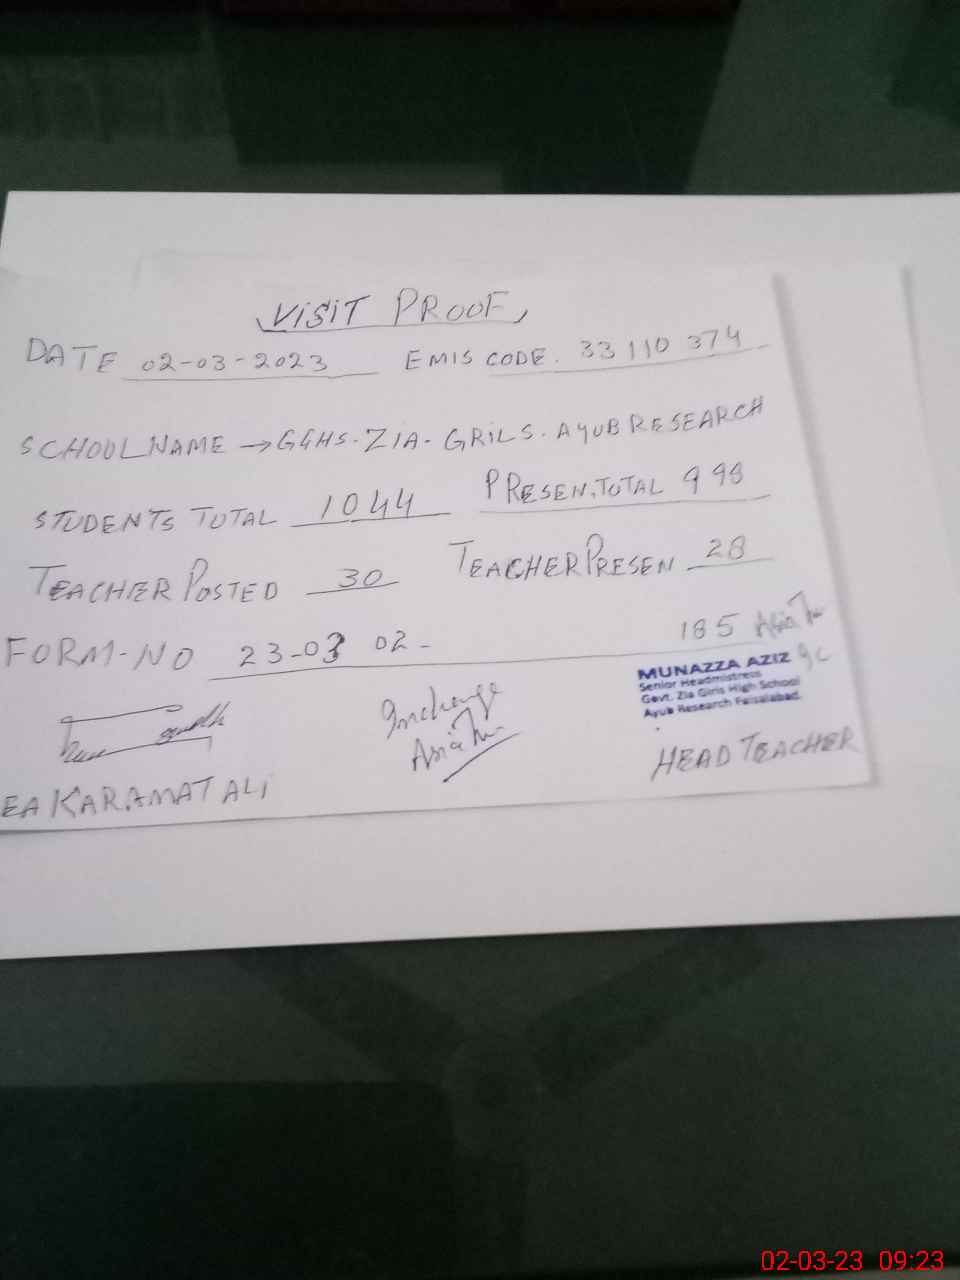 VISIT PROOF
DATE 02-03-2023 EMIS CODE. 33110374
SCHOOL NAME → GGHS. ZIA. GRILS. AYUB RESEARCH
STUDENTS TOTAL 1044 PRESEN. TOTAL 998
TEACHER POSTED 30 TEACHER PRESEN 28
FORM-NO 23-03 02- 185
MUNAZZA AZIZ
Senior Headmistress
Govt. Zia Girls High School
Ayub Research Faisalabad.
Incharge
HEAD TEACHER
EA KARAMAT ALI
02-03-23 09:23